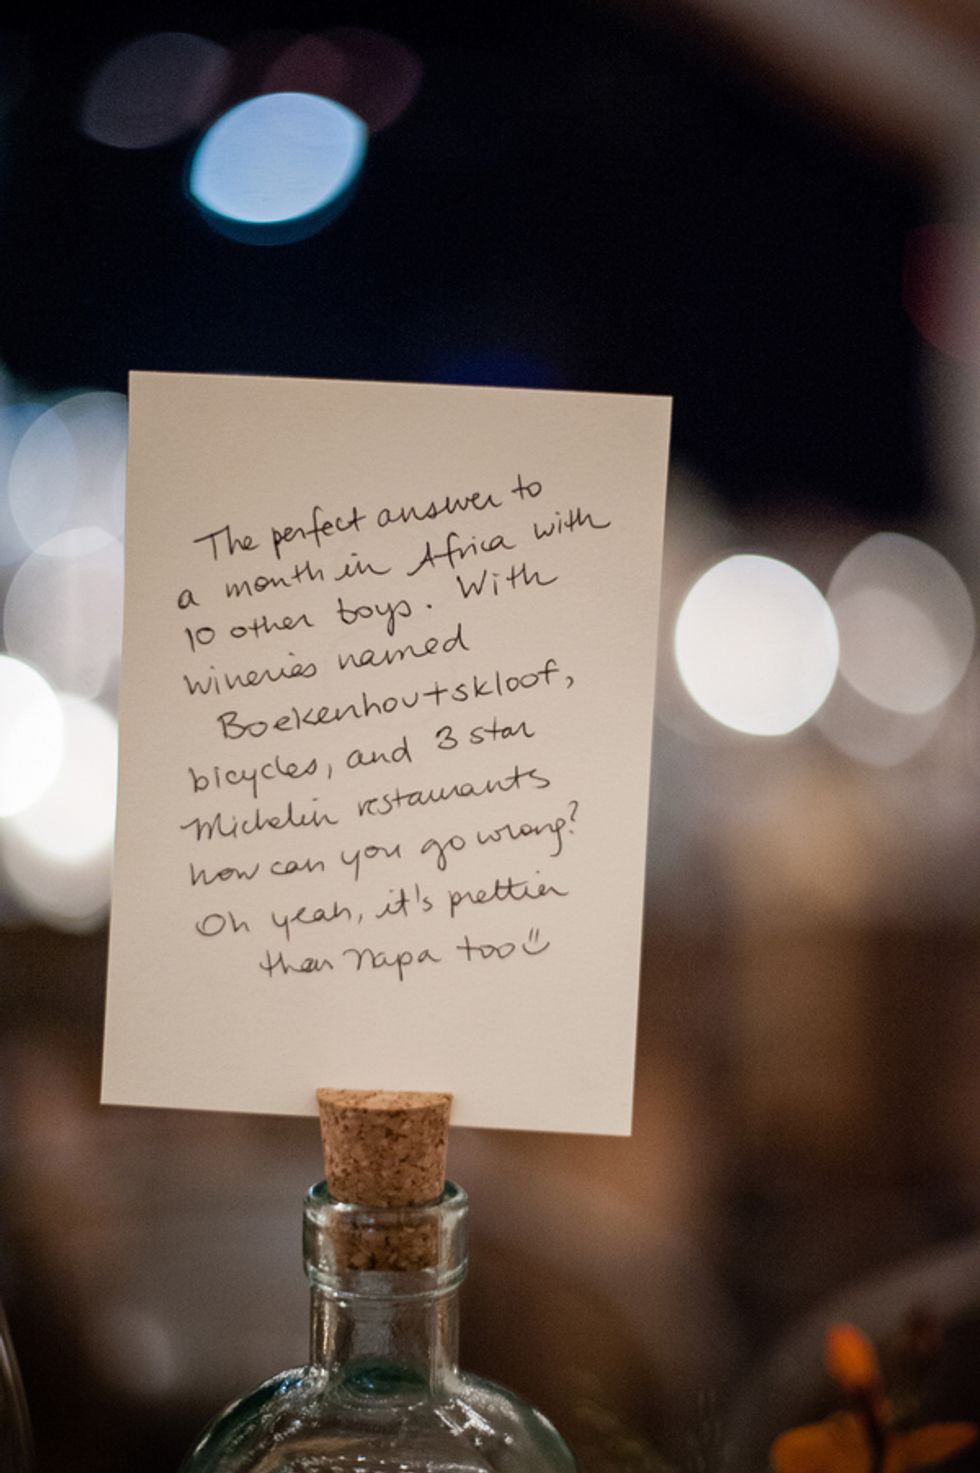 The perfect answer to
a month in Africa with
10 other boys. With
wineries named
Boekenhoutskloof,
bicycles, and 3 star
Michelin restaurants
how can you go wrong?
Oh yeah, it's prettier
than Napa too ü